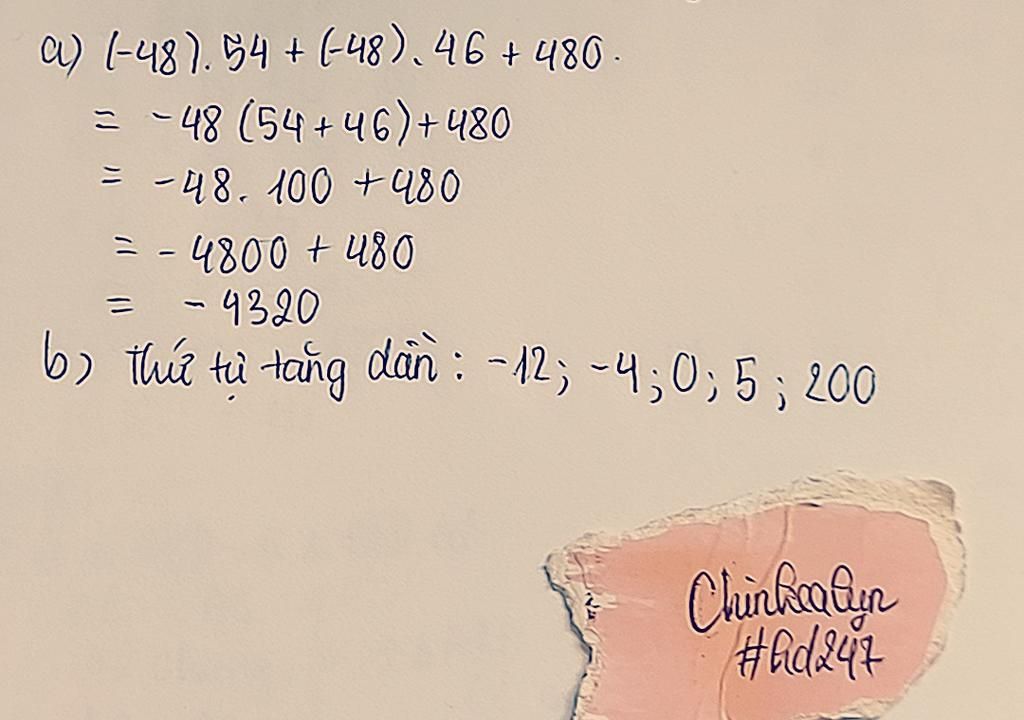 a) (-48). 54 + (-48). 46 + 480.
= -48 (54 + 46) + 480
= -48. 100 + 480
= - 4800 + 480
= - 4320
b) Thứ tự tăng dần : -12; -4; 0; 5; 200
#hd247